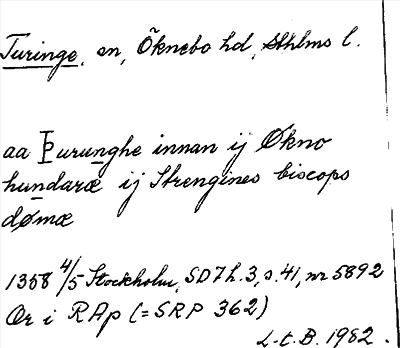 Turinge, sn, Öknebo hd, Sthlms l.
aa Þurunghe innan ij Økno
hundaræ ij Strengines biscops
dømæ
1358 4/5 Stockholm, SD 7 h. 3, s. 41, nr 5892
Or i RAp (= SRP 362)
L.t.B. 1982.